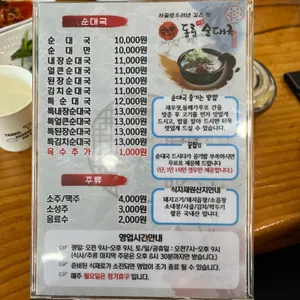 순대국
순 대 국 10,000원
순 대 만 10,000원
내장순대국 11,000원
얼큰순대국 11,000원
된장순대국 11,000원
김치순대국 11,000원
특 순 대 국 12,000원
특내장순대국 13,000원
특얼큰순대국 13,000원
특된장순대국 13,000원
특김치순대국 13,000원
육 수 추 가 1,000원
주류
소주/맥주 4,000원
소성주 3,000원
음료수 2,000원
사골로 우려낸 깊은 맛
순대국
순대국 즐기는 방법!
새우젓,들깨가루로 간을
맞춘 후 고기를 먼저 맛있게
드시고, 밥을 말아 드시면 더욱
맛있게 드실 수 있습니다.
꿀팁!!
순대국 드시다가 공기밥 부족하시면
무료로 제공해드립니다
(단, 1인 1식한 경우만 제공합니다)
식자재원산지안내
돼지고기/돼지곱창/소곱창
순대장/사골/김치/깍두기
쌀은 국내산 입니다.
영업시간안내
평일: 오전 9시~오후 9시, 토/일/공휴일 : 오전7시~오후 9시
(식사/주류 마지막 주문은 오후 8시 30분까지만 받습니다)
준비된 식재료가 소진되면 영업이 조기 종료 될 수 있습니다.
매주 월요일은 정기휴무 입니다.